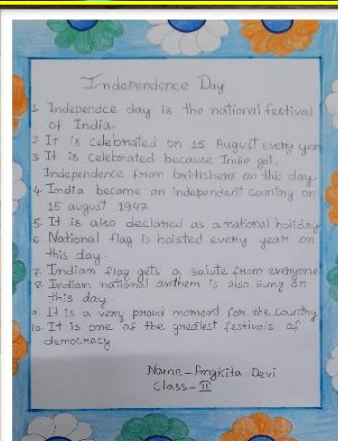 Independence Day
1. Independce day is the national festival
of India.
2. It is celebrated on 15 August every year
3 It is celebrated because India got,
Independence from britishers on this day
4. India became an independent country on
15 august 1947
5. It is also declared as a national holiday
6 National flag is hoisted every year on
this day.
7. Indian flag gets a salute from everyone
8. Indian national anthem is also sung on
this day.
9. It is a very proud moment for the country
10. It is one of the greatest festivals of
democracy
Name - Angkita Devi
Class - II